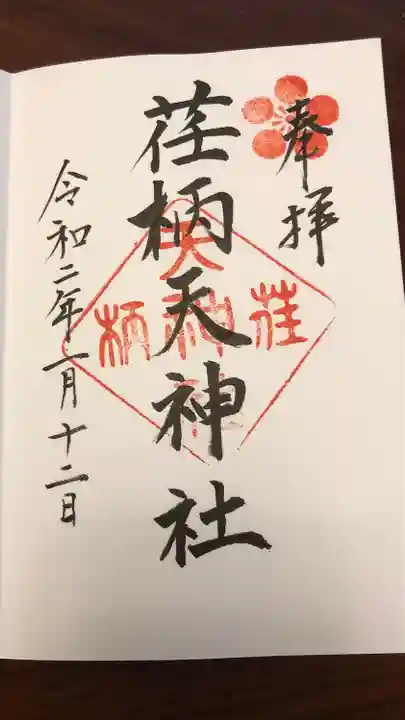 奉拝
荏柄天神社
荏柄天神社
令和二年一月十二日